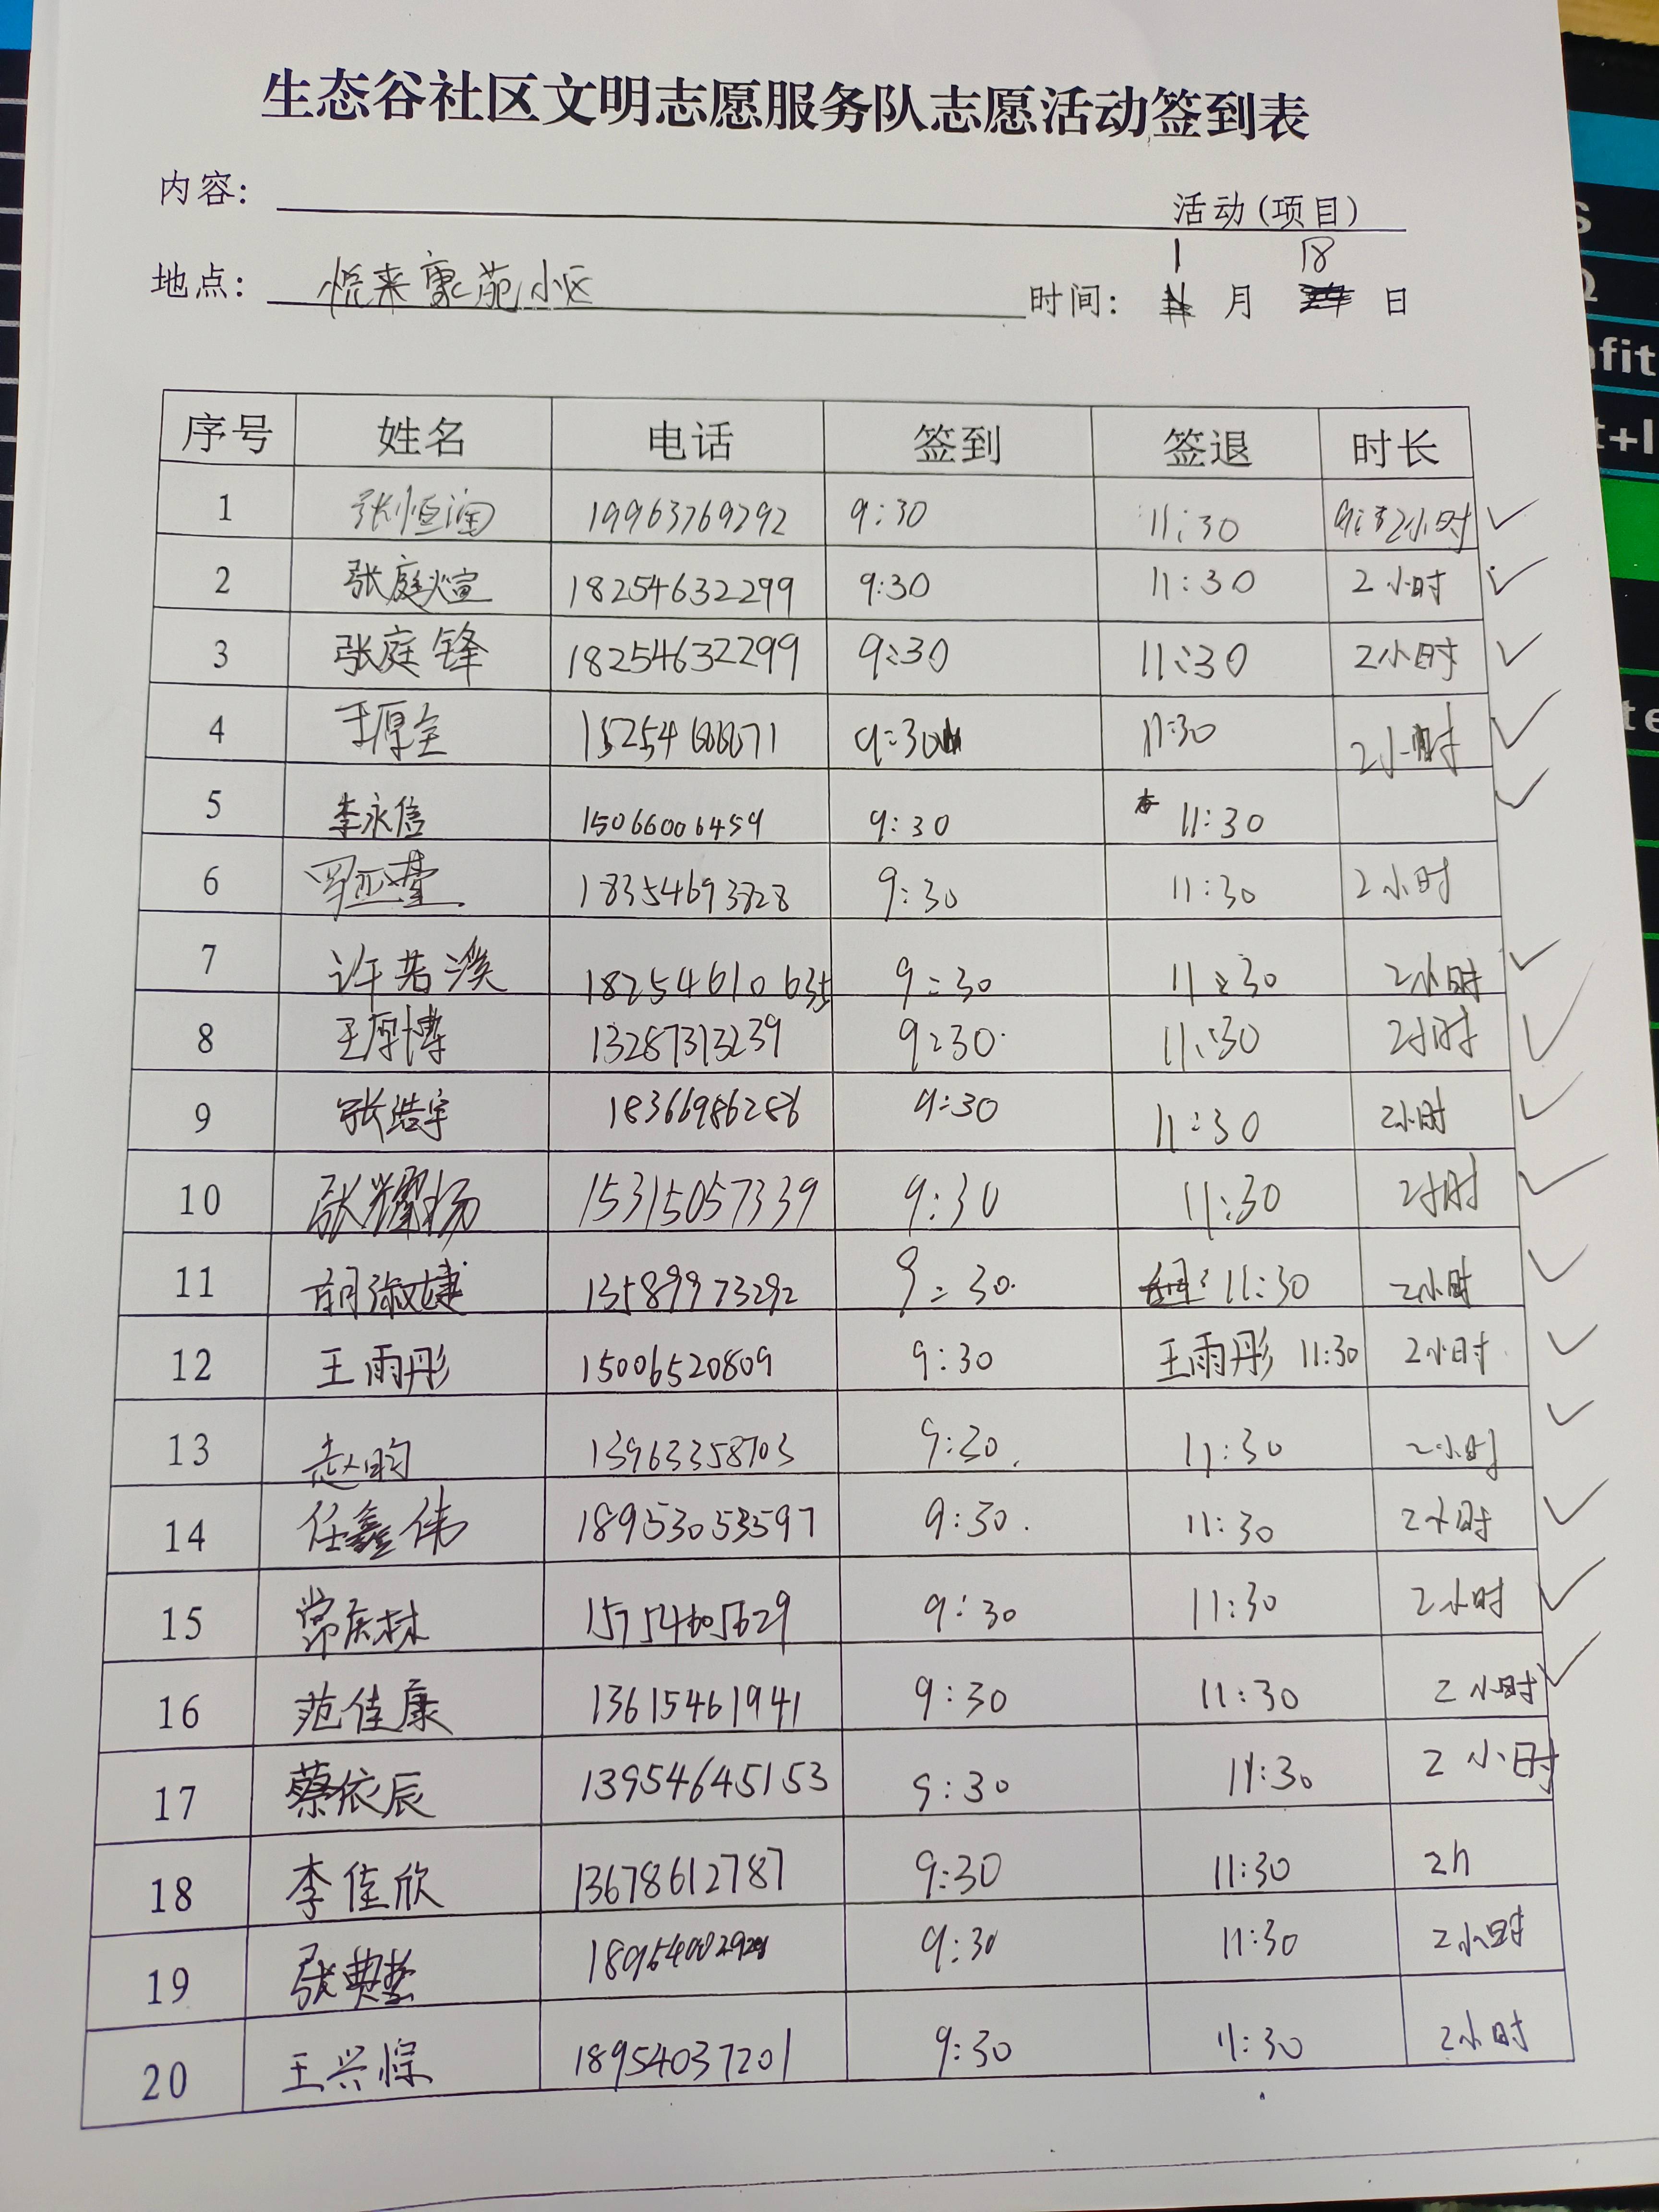 生态谷社区文明志愿服务队志愿活动签到表
内容: 活动(项目)
地点: 悦来康苑小区 时间: 1 月 18 日
序号 姓名 电话 签到 签退 时长
1 张恒淘 19963769292 9:30 11:30 2小时
2 张庭煊 18254632299 9:30 11:30 2小时
3 张庭锋 18254632299 9:30 11:30 2小时
4 9:30 11:30 2小时
5 李永信 15066006459 9:30 11:30
6 18354693828 9:30 11:30 2小时
7 许若溪 9:30 11:30 2小时
8 王厚博 13287313239 9:30 11:30 2小时
9 张浩宇 18366986286 9:30 11:30 2小时
10 张耀扬 15315057339 9:30 11:30 2小时
11 胡淑婕 13589973292 9:30 11:30 2小时
12 王雨彤 15006520809 9:30 王雨彤 11:30 2小时
13 赵昀 13963358703 9:30 11:30 2小时
14 任鑫伟 18953053597 9:30 11:30 2小时
15 常庆林 9:30 11:30 2小时
16 范佳康 13615461941 9:30 11:30 2小时
17 蔡依辰 13954645153 9:30 11:30 2小时
18 李佳欣 13678612787 9:30 11:30 2h
19 9:30 11:30 2小时
20 王兴悰 18954037201 9:30 11:30 2小时